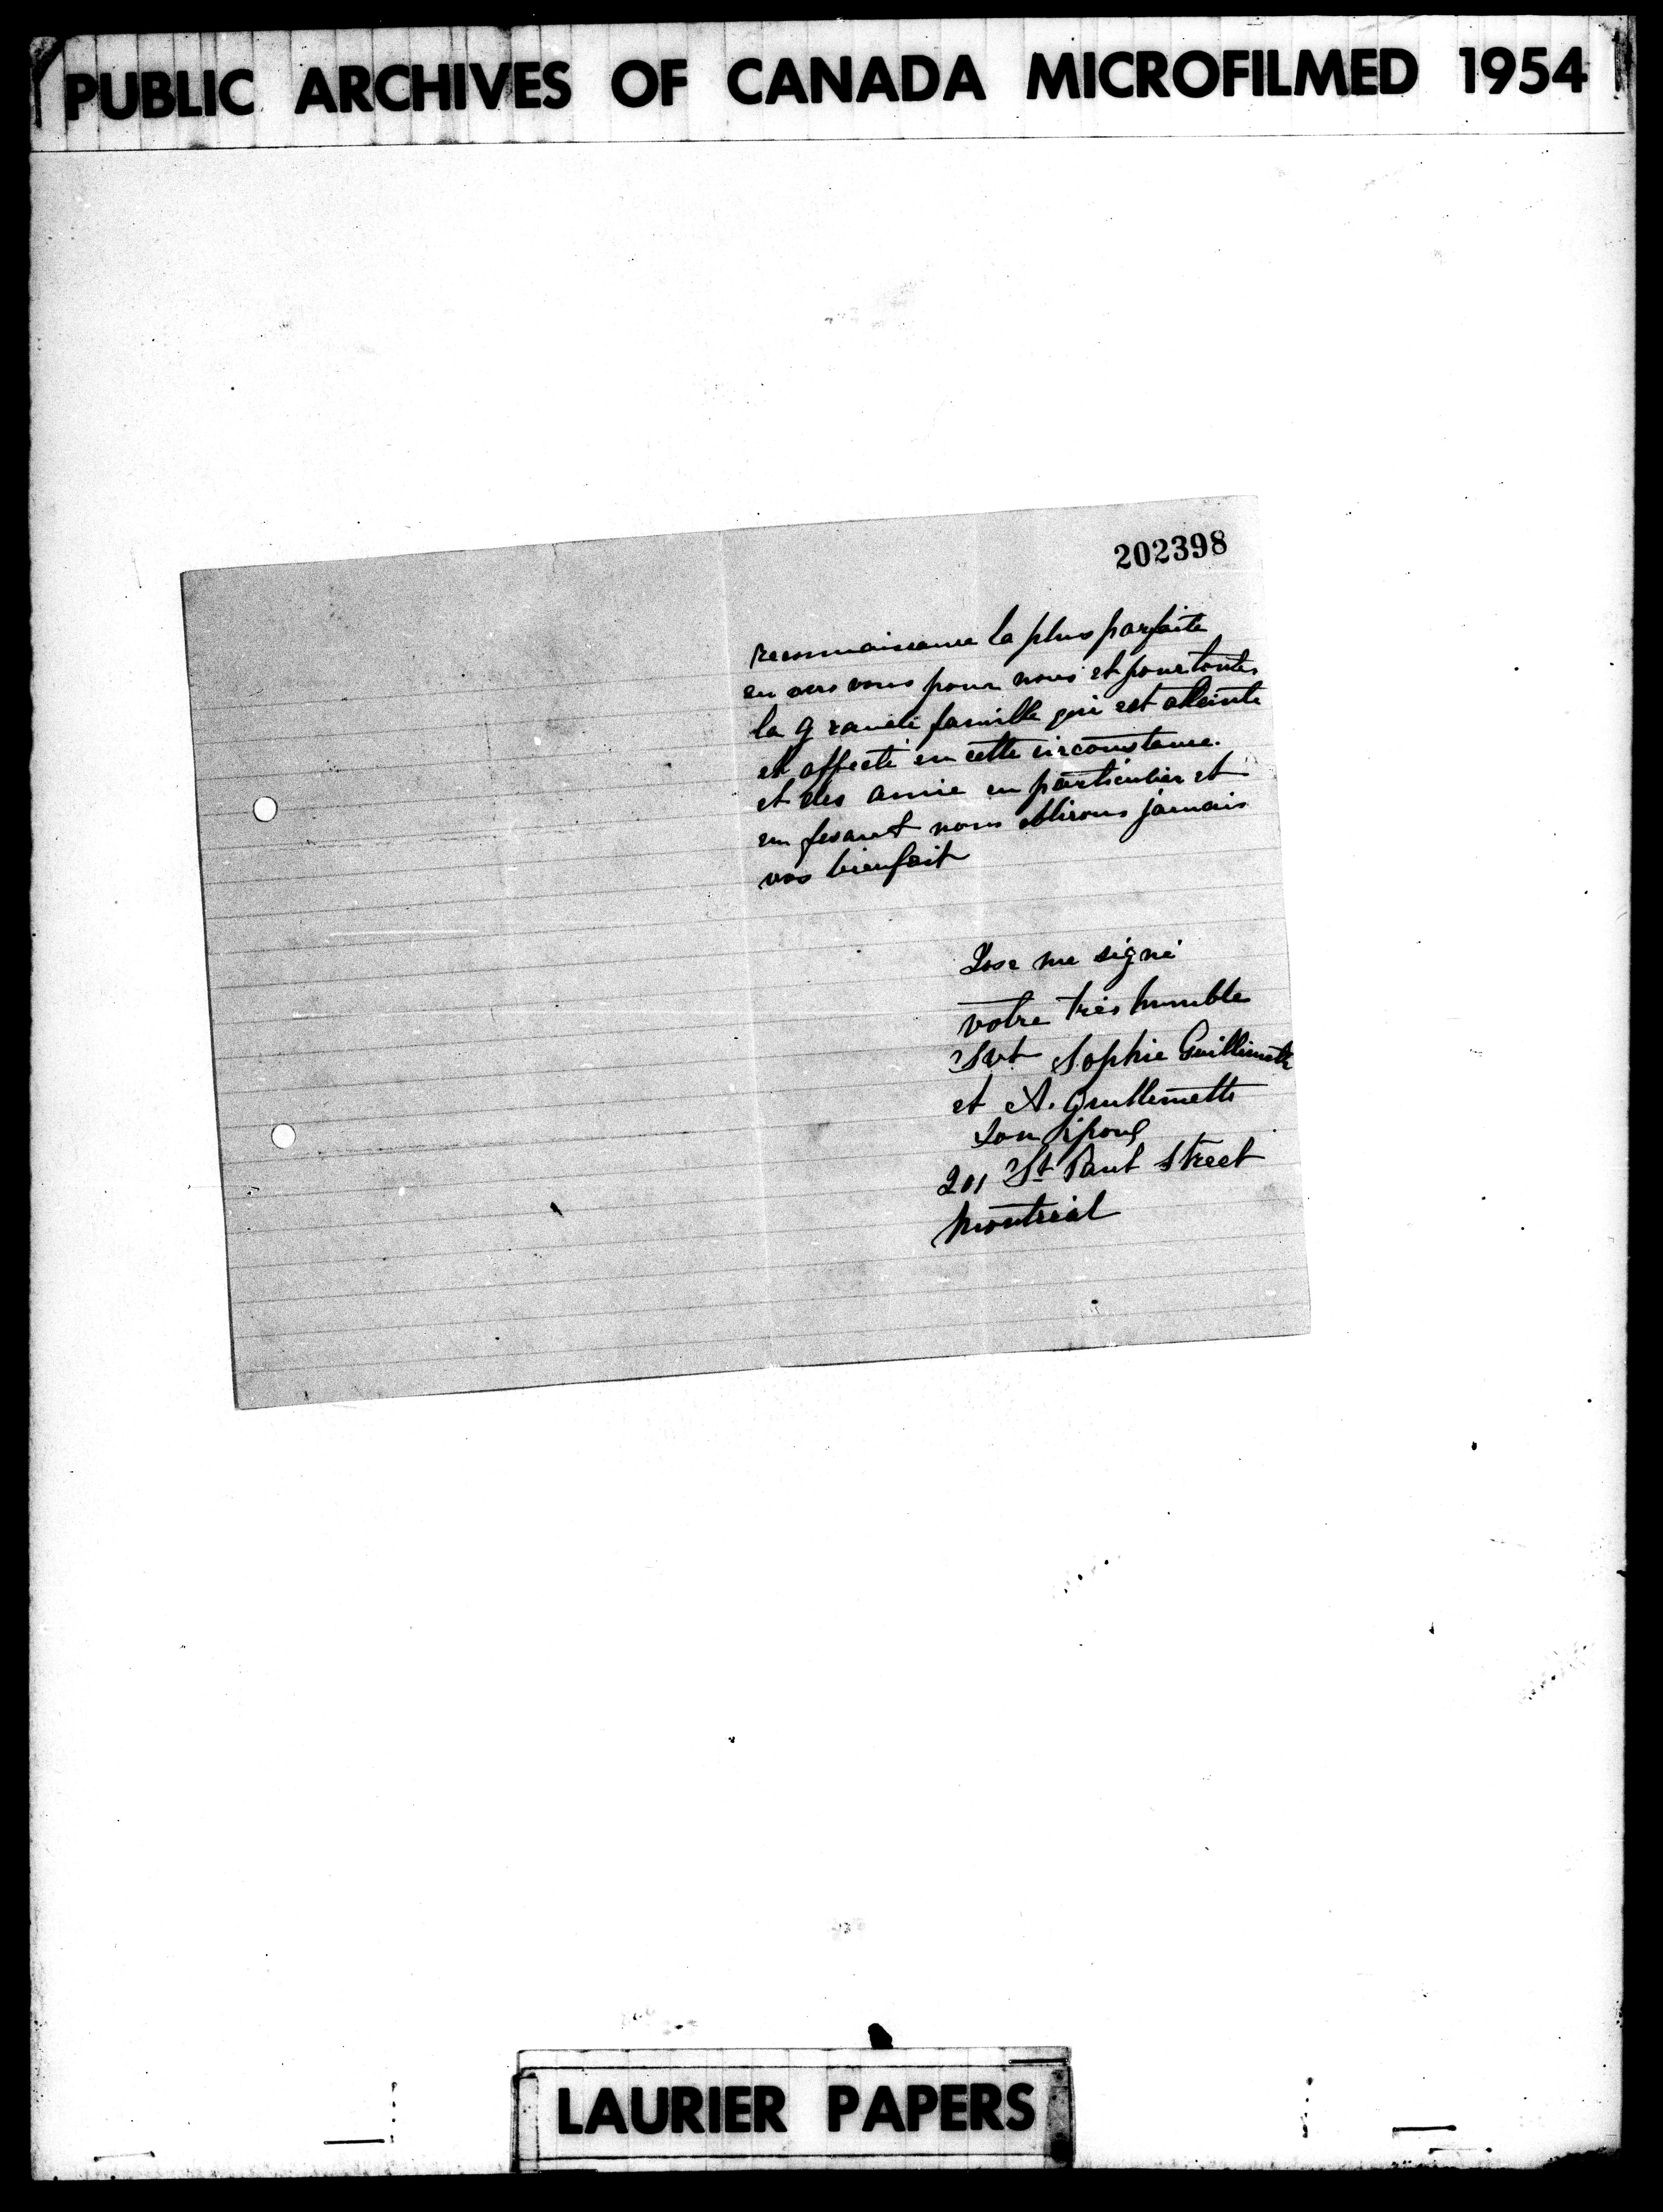 PUBLIC ARCHIVES OF CANADA MICROFILMED 1954
202398
reconnaissance la plus parfaite
en vers vous pour nous et pour toutes
la grande famille qui est atteinte
et affecté en cette circonstance.
et des amie en particulier et
en fesant nous oblirons jamais
vos bienfait
J'ose me signé
votre très humble
Svt Sophie Guillimette
et A. Guillemette
son époux
201 St Paul Street
Montréal
LAURIER PAPERS